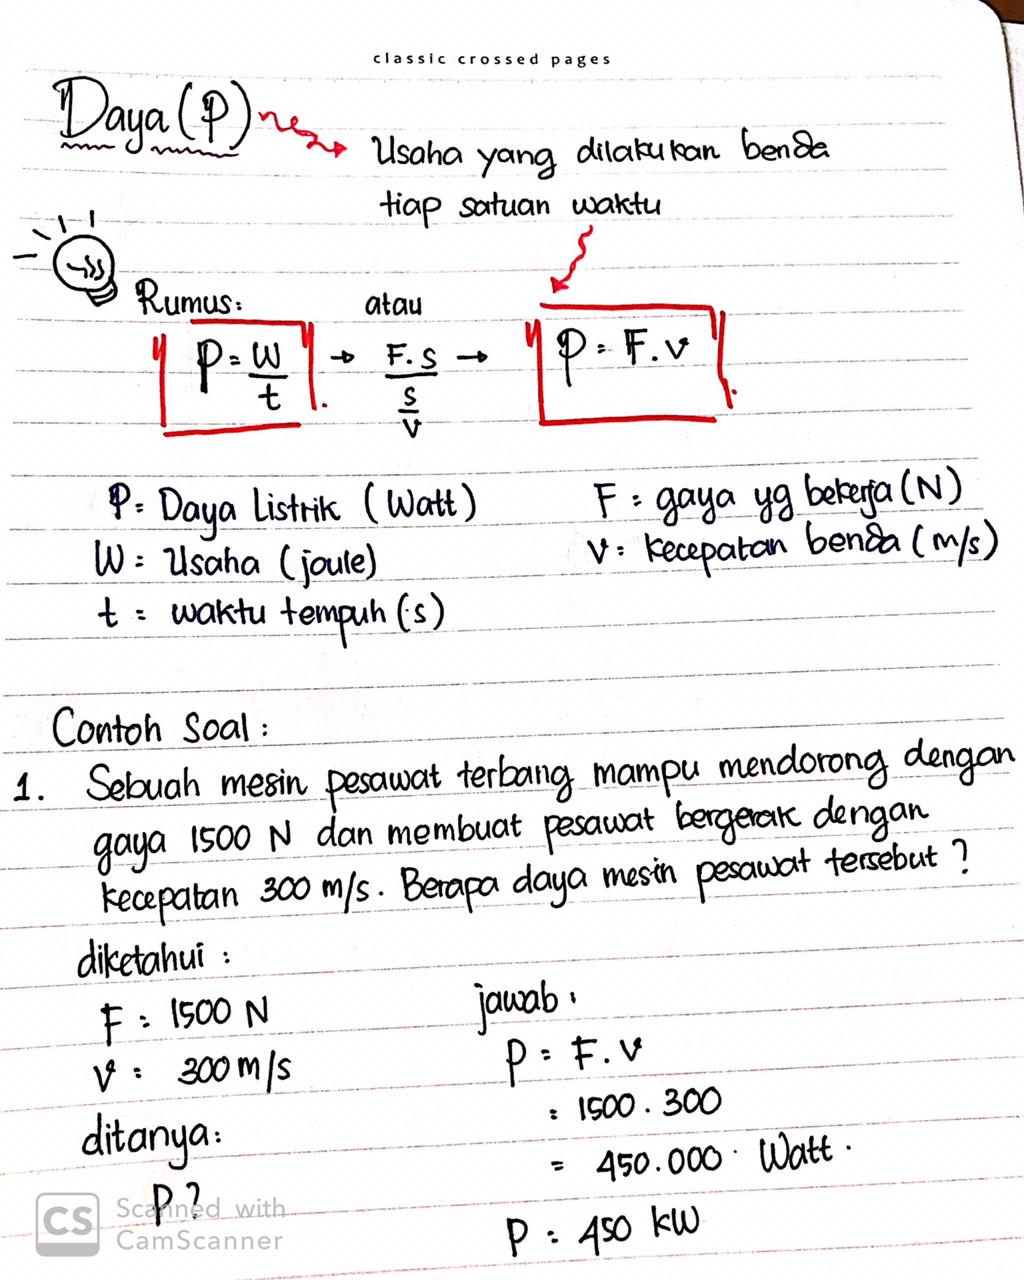 classic crossed pages
Daya (P)
Usaha yang dilakukan benda
tiap satuan waktu
Rumus: atau
P = W/t → F.s / (s/v) → P = F.v
P = Daya Listrik (Watt)
W = Usaha (joule)
t = waktu tempuh (s)
F = gaya yg bekerja (N)
v = kecepatan benda (m/s)
Contoh Soal :
1. Sebuah mesin pesawat terbang mampu mendorong dengan
gaya 1500 N dan membuat pesawat bergerak dengan
kecepatan 300 m/s. Berapa daya mesin pesawat tersebut ?
diketahui :
F = 1500 N
v = 300 m/s
ditanya:
P ?
jawab :
P = F.v
= 1500 . 300
= 450.000 Watt.
P = 450 kW
CS Scanned with
CamScanner